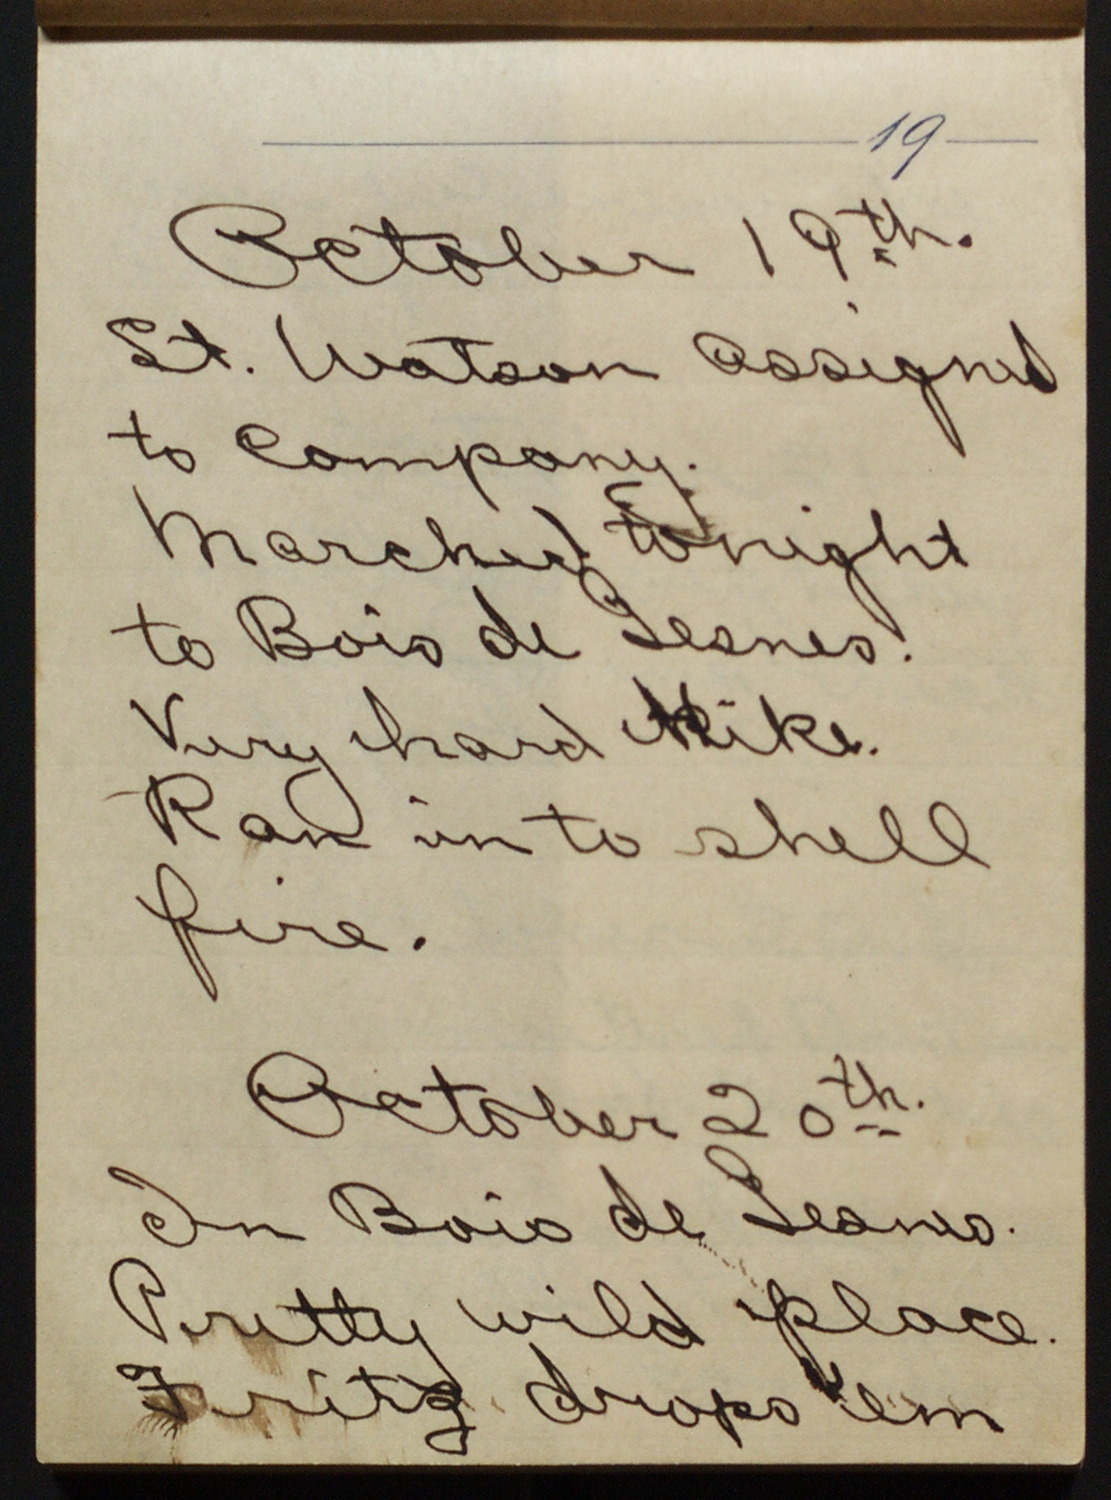 19
October 19th.
Lt. Watson assigned
to Company.
Marched tonight
to Bois de Gesnes.
Very hard Hike.
Ran into shell
fire.
October 20th.
In Bois de Gesnes.
Pretty wild place.
Fritz drops 'em